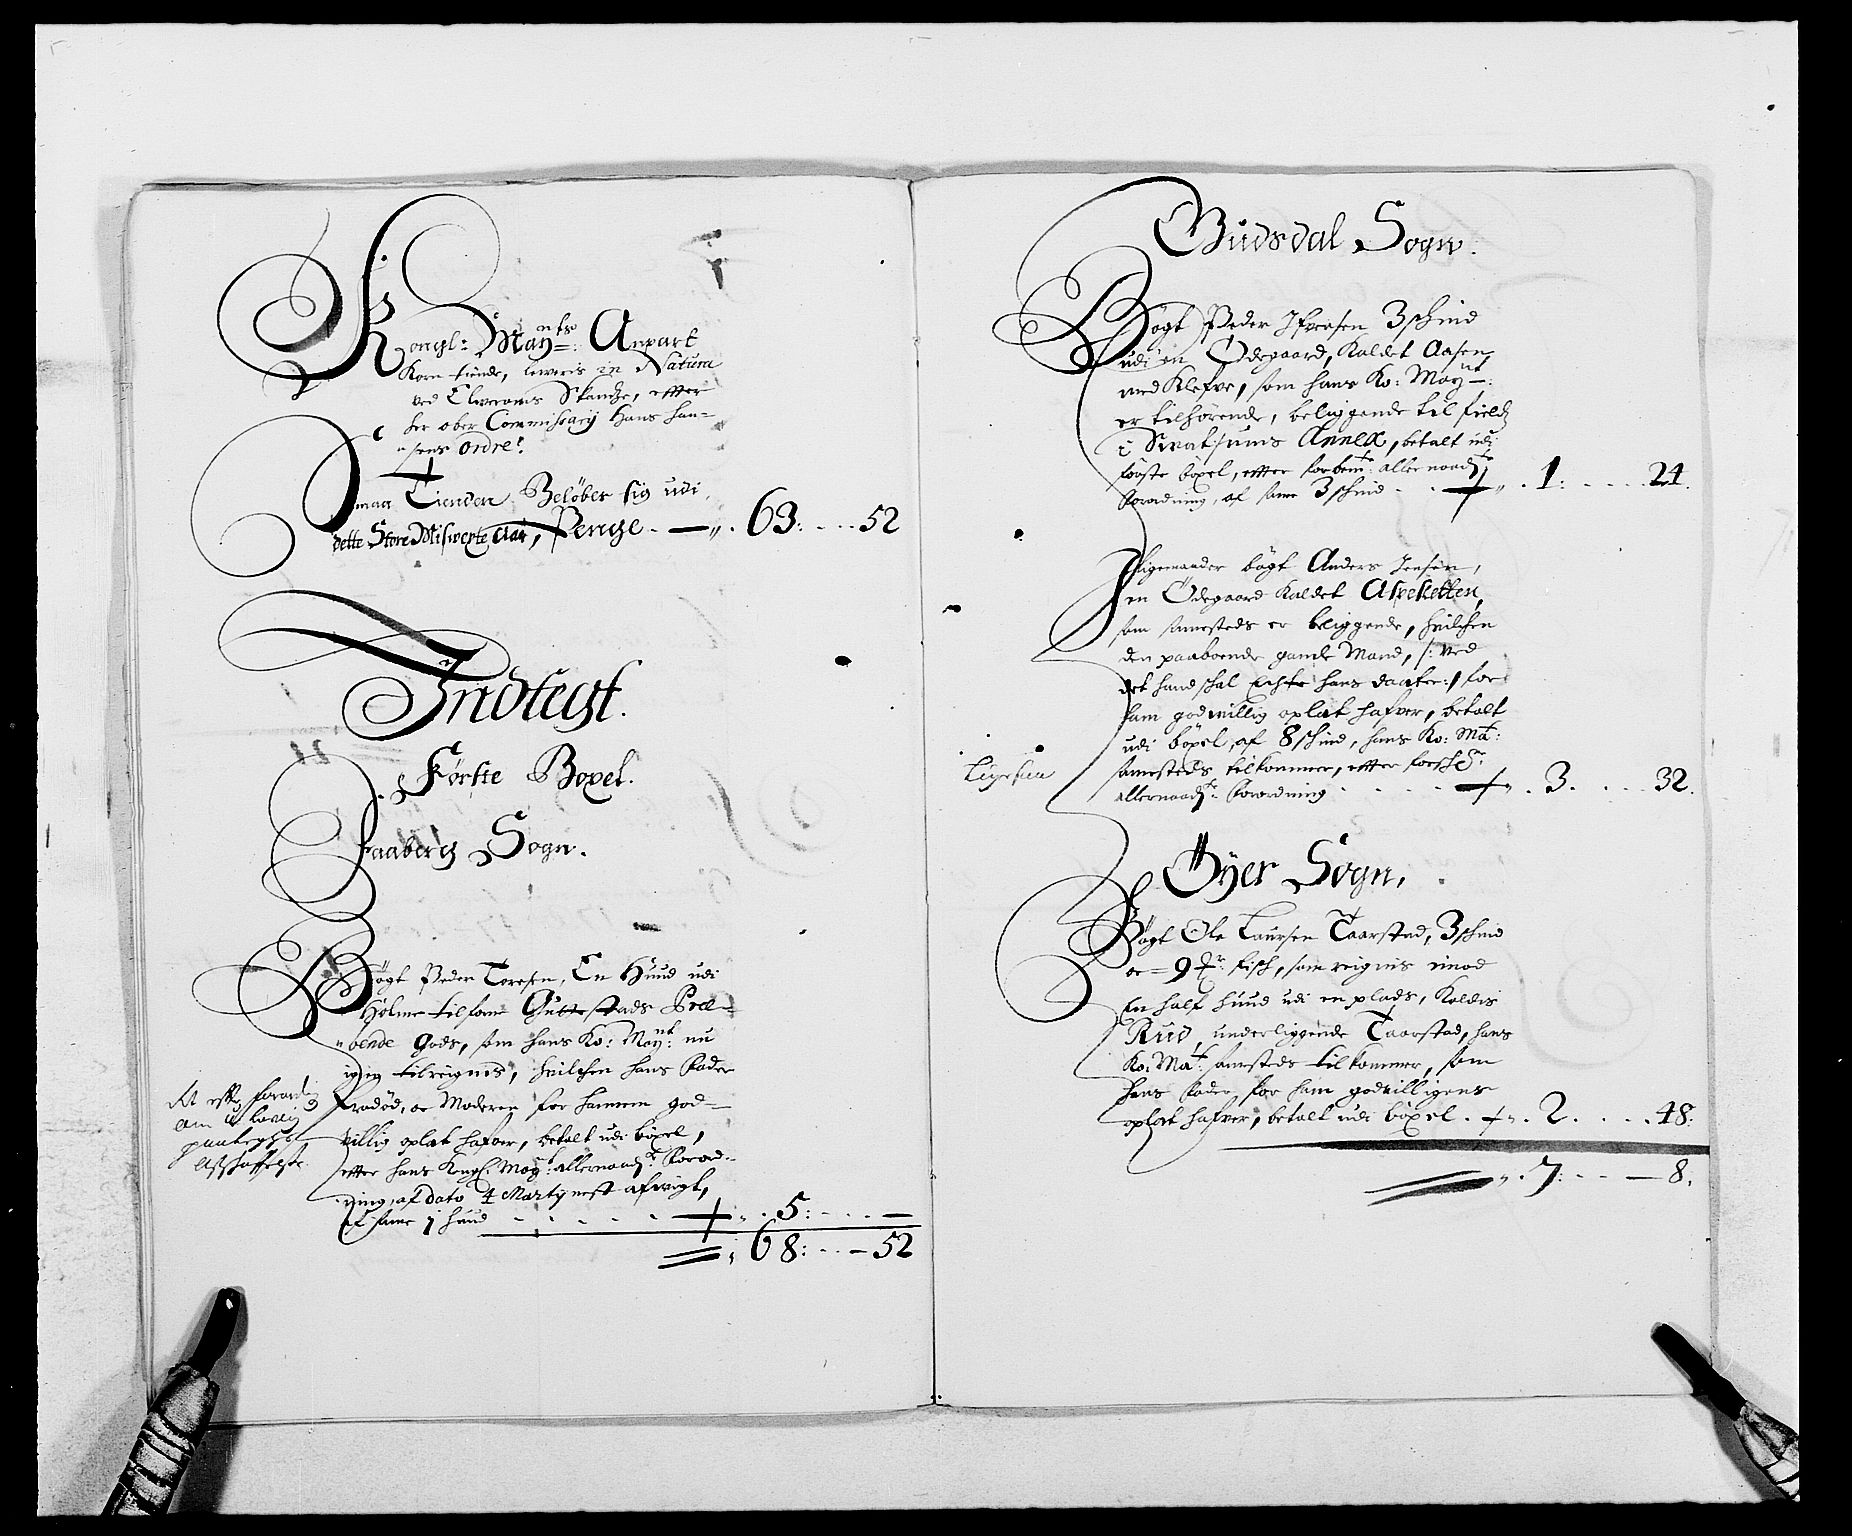 Kongl: May:nts Anpart
Korn tiende, leveris in Natura
ved Elveroms Skandtze, efter
her ober Commissarij Hans Han=
=sens Ordre:
Smaa Tienden Beløber sig udi
dette Store Misvexte Aar, Penge - — „ . 63: - - - 52
Indtegt.
Førsste Boxel.
Faaberg Sogn.
Bögt Peder Toresen, En Huud udi
Holme tilforn Guttestads Proe=
=bende Gods, som hans Ko: May:nt: nu
igien tilreignes, huilchen hans Fader
fradöd, oc Moderen for hannem god=
villig oplat hafver, betalt udi böxel,
efter hans Kongl: May:t: allernaad:te Forord=
ning, af dato 4 Martij nest afvigt,
af same 1 huud - - - - - - „ . 5: - - - —
„ 68: - - - 52
Gudsdal Sogn.
Bögt Peder Ifversen 3 schind
udi en Ödegaard, Kaldet Aasen
med Klefve, som hans Ko: May:nt:
er tilhörende, beliggende til field
i Svatsums Annex, betalt udi
förste boxel, efter forbem:te allernaad:te
Forordning, af same 3 schind - - „ . 1: - - - - 24.
Ligemaader bögt Anders Jensen,
en Ödegaard Kaldet Aspeketten,
som samesteds er beliggende, huilchen
den paaboende gamle Mand, /: ved
det hand schal Echte hans daatter :/ for
ham godvillig oplat hafver, betalt
udi böxel, af 8 schind, hans Ko: Ma:t:
samesteds tilkommer, efter forsch:ne
allernaad:te Forordning - - - - „ . 3. - - - - 32.
Ligesaa
Öyer Sogn,
Bögt Ole Laursen Taarstad, 3 schind
oc = 9 fisch, som reignis imod
En half huud udi en plads, Kaldis
Rud, underliggende Taarstad, hans
Ko: Ma:t: samesteds tilkommer, som
hans Fader for ham godvilligens
oplat hafver, betalt udi böxel . „ . 2. - - - . 48:
„ . 7: - - — 8.